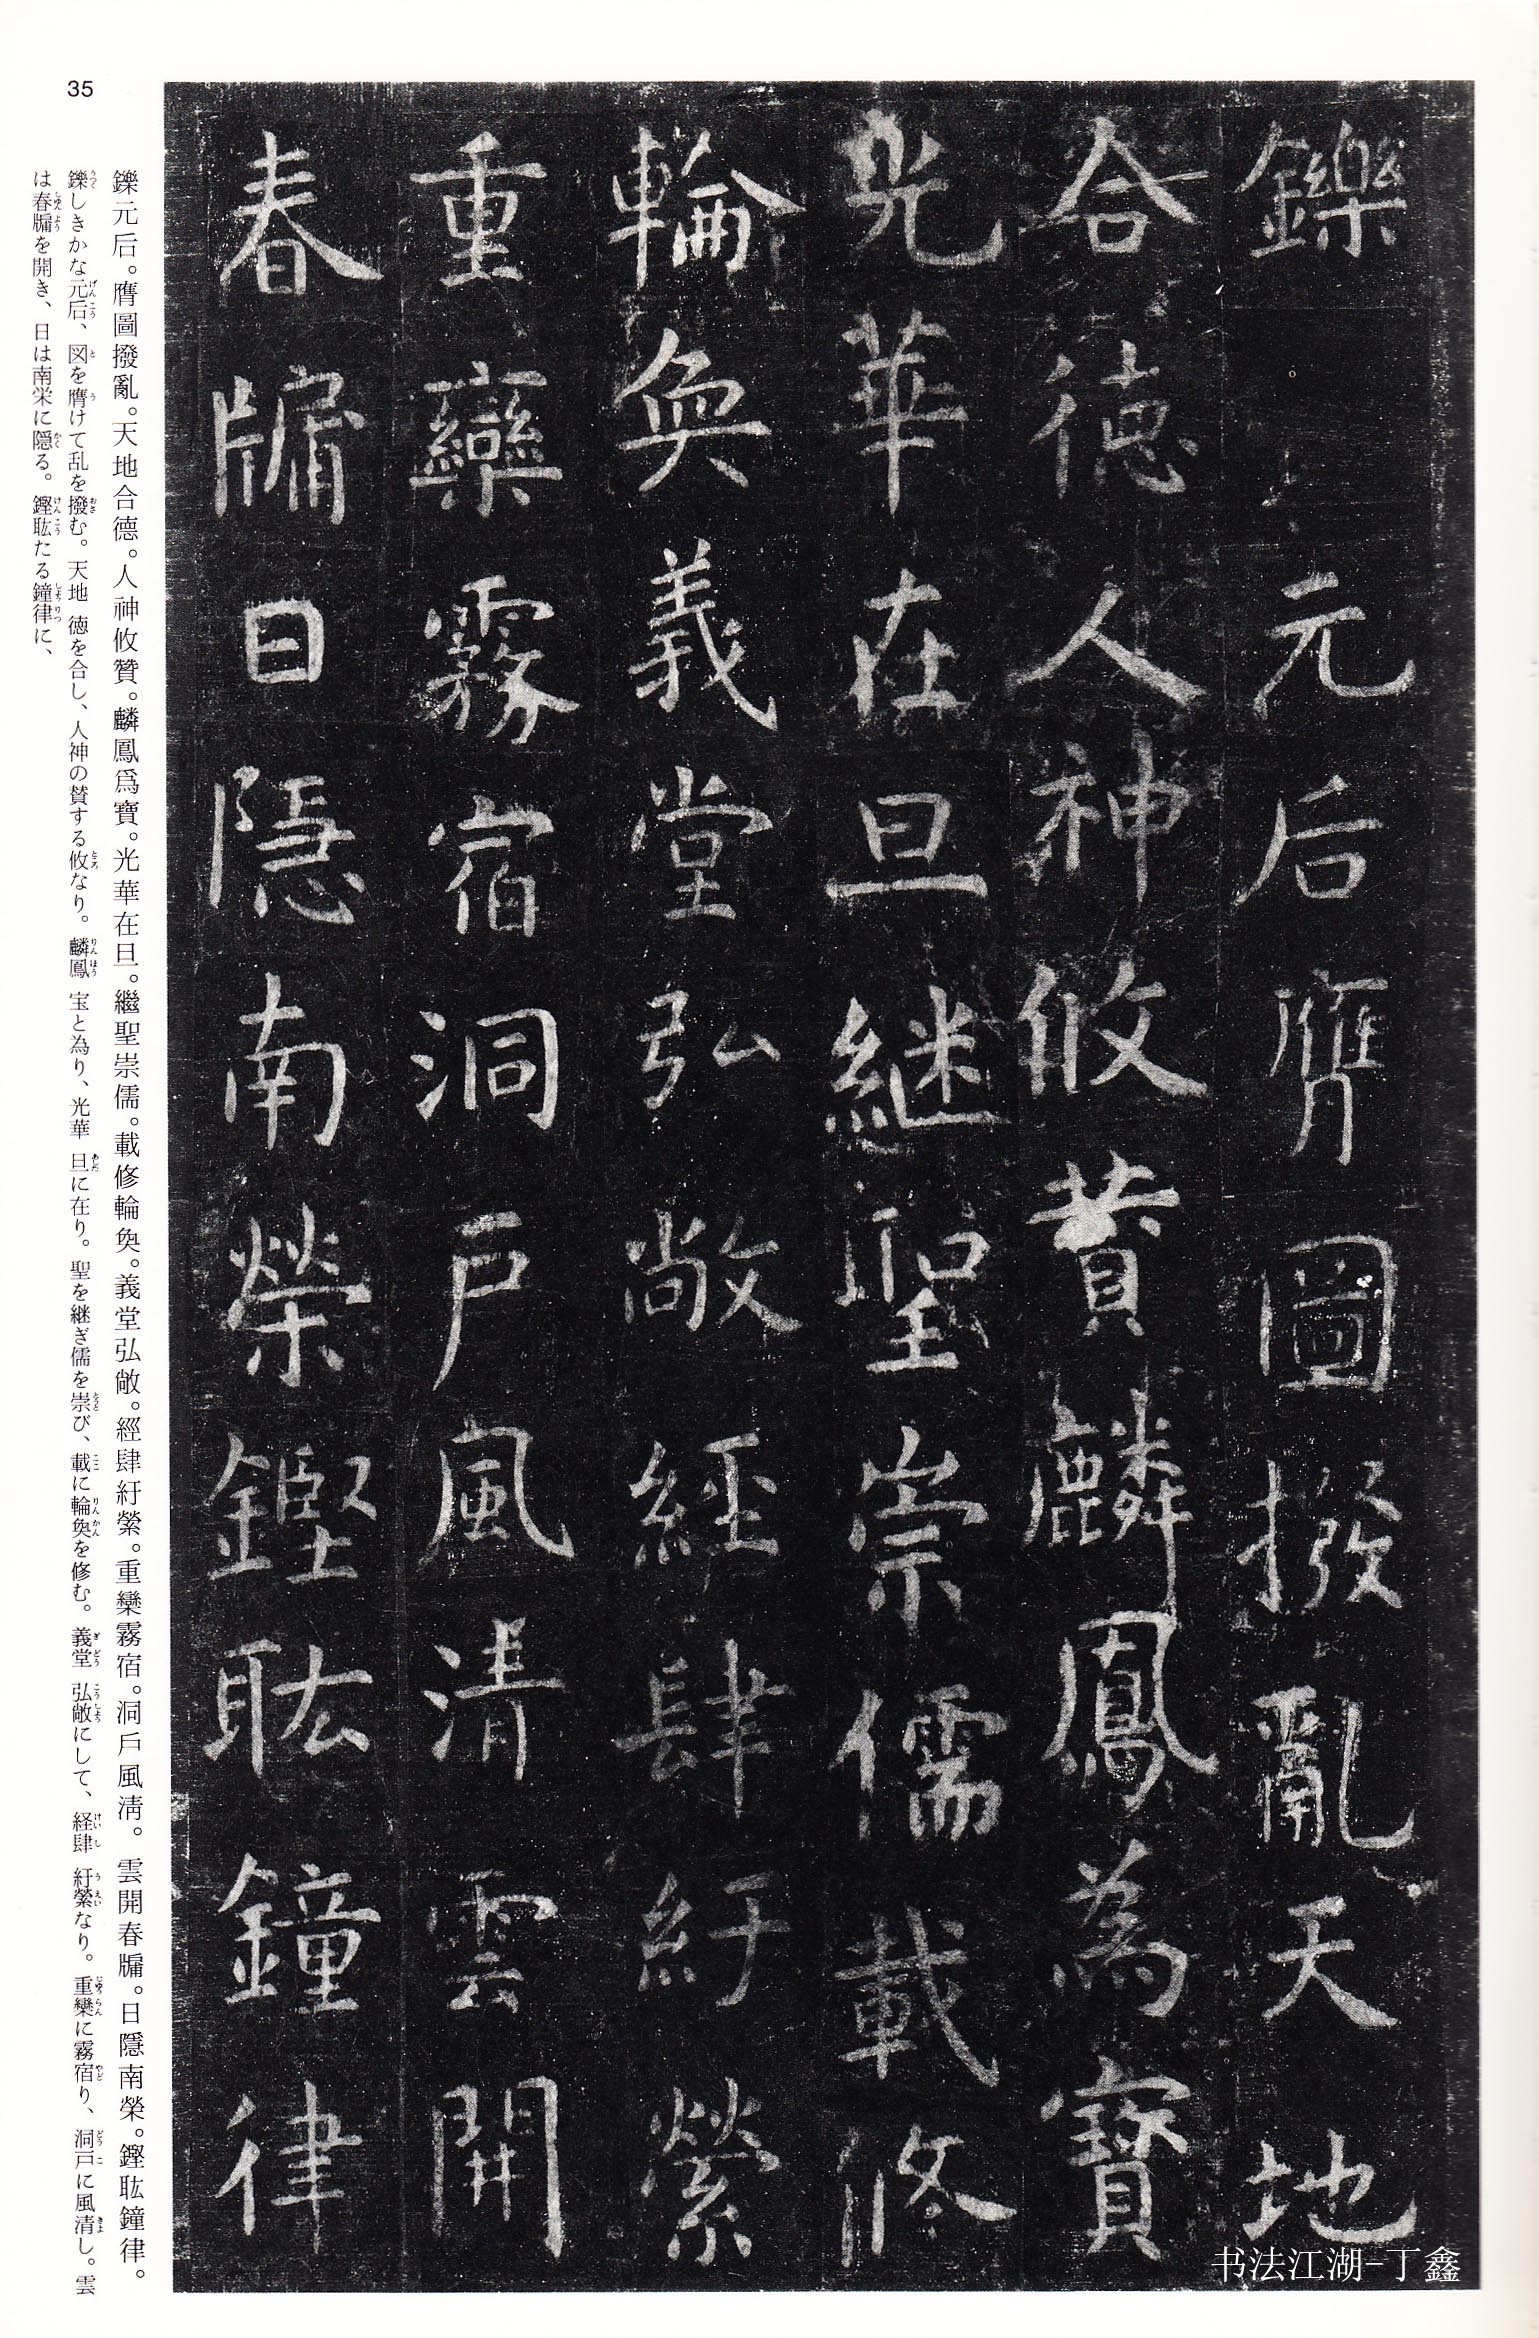 鑠元后膺圖撥亂天地
合德人神攸賛麟鳳為寶
光華在旦継聖崇儒載脩
輪奐義堂弘敞經肆紆縈
重欒霧宿洞戶風清雲開
春牖日隱南榮鏗耾鐘律
鑠元后。膺圖撥亂。天地合德。人神攸贊。麟鳳爲寶。光華在旦。繼聖崇儒。載修輪奐。義堂弘敞。經肆紆縈。重欒霧宿。洞戶風清。雲開春牖。日隱南榮。鏗耾鐘律。
鑠しきかな元后、図を膺けて乱を撥む。天地 徳を合し、人神の賛する攸なり。麟鳳 宝と為り、光華 旦に在り。聖を継ぎ儒を崇び、載に輪奐を修む。義堂 弘敞にして、経肆 紆縈なり。重欒に霧宿り、洞戸に風清し。雲
は春牖を開き、日は南栄に隠る。鏗耾たる鐘律に、
35
书法江湖-丁鑫